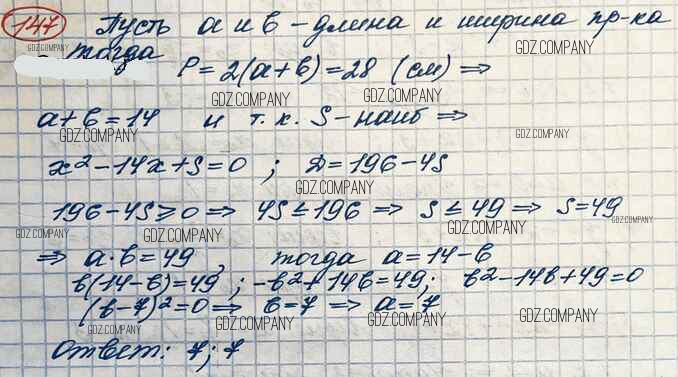 147 Пусть a и b – длина и ширина пр-ка
GDZ.COMPANY GDZ.COMPANY
тогда P = 2(a+b) = 28 (см) ⇒
GDZ.COMPANY GDZ.COMPANY
a+b = 14 и т.к. S – наиб ⇒
GDZ.COMPANY GDZ.COMPANY
x² – 14x + S = 0 ; D = 196 – 4S
GDZ.COMPANY
196 – 4S ≥ 0 ⇒ 4S ≤ 196 ⇒ S ≤ 49 ⇒ S = 49
GDZ.COMPANY GDZ.COMPANY GDZ.COMPANY GDZ.COMPANY
⇒ a·b = 49, тогда a = 14 – b
b(14 – b) = 49 ; –b² + 14b = 49; b² – 14b + 49 = 0
(b – 7)² = 0 ⇒ b = 7 ⇒ a = 7
GDZ.COMPANY GDZ.COMPANY GDZ.COMPANY GDZ.COMPANY
Ответ: 7; 7